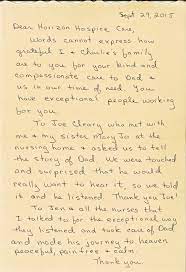 Sept. 29, 2015
Dear Horizon Hospice Care,
Words cannot express how
grateful I & Charlie's family
are to you for your kind and
compassionate care to Dad &
us in our time of need. You
have exceptional people working
for you.
To Joe Cleary who met with
me & my sister Mary Jo at the
nursing home & asked us to tell
the story of Dad. We were touched
and surprised that he would
really want to hear it, so we told
it and he listened. Thank you Joe!
To Jen & all the nurses that
I talked to for the exceptional way
they listened and took care of Dad
and made his journey to heaven
peaceful, pain free & calm.
Thank you.